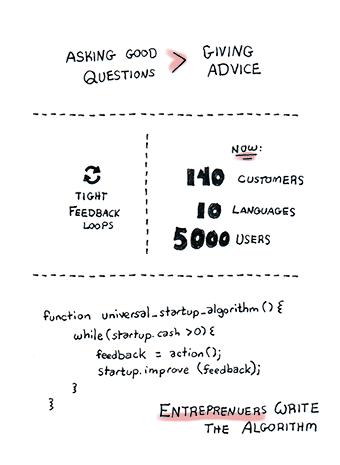 ASKING GOOD QUESTIONS > GIVING ADVICE
TIGHT
FEEDBACK
LOOPS
NOW:
140 CUSTOMERS
10 LANGUAGES
5000 USERS
function universal_startup_algorithm() {
while (startup.cash >0) {
feedback = action();
startup.improve (feedback);
}
}
ENTREPRENUERS WRITE
THE ALGORITHM